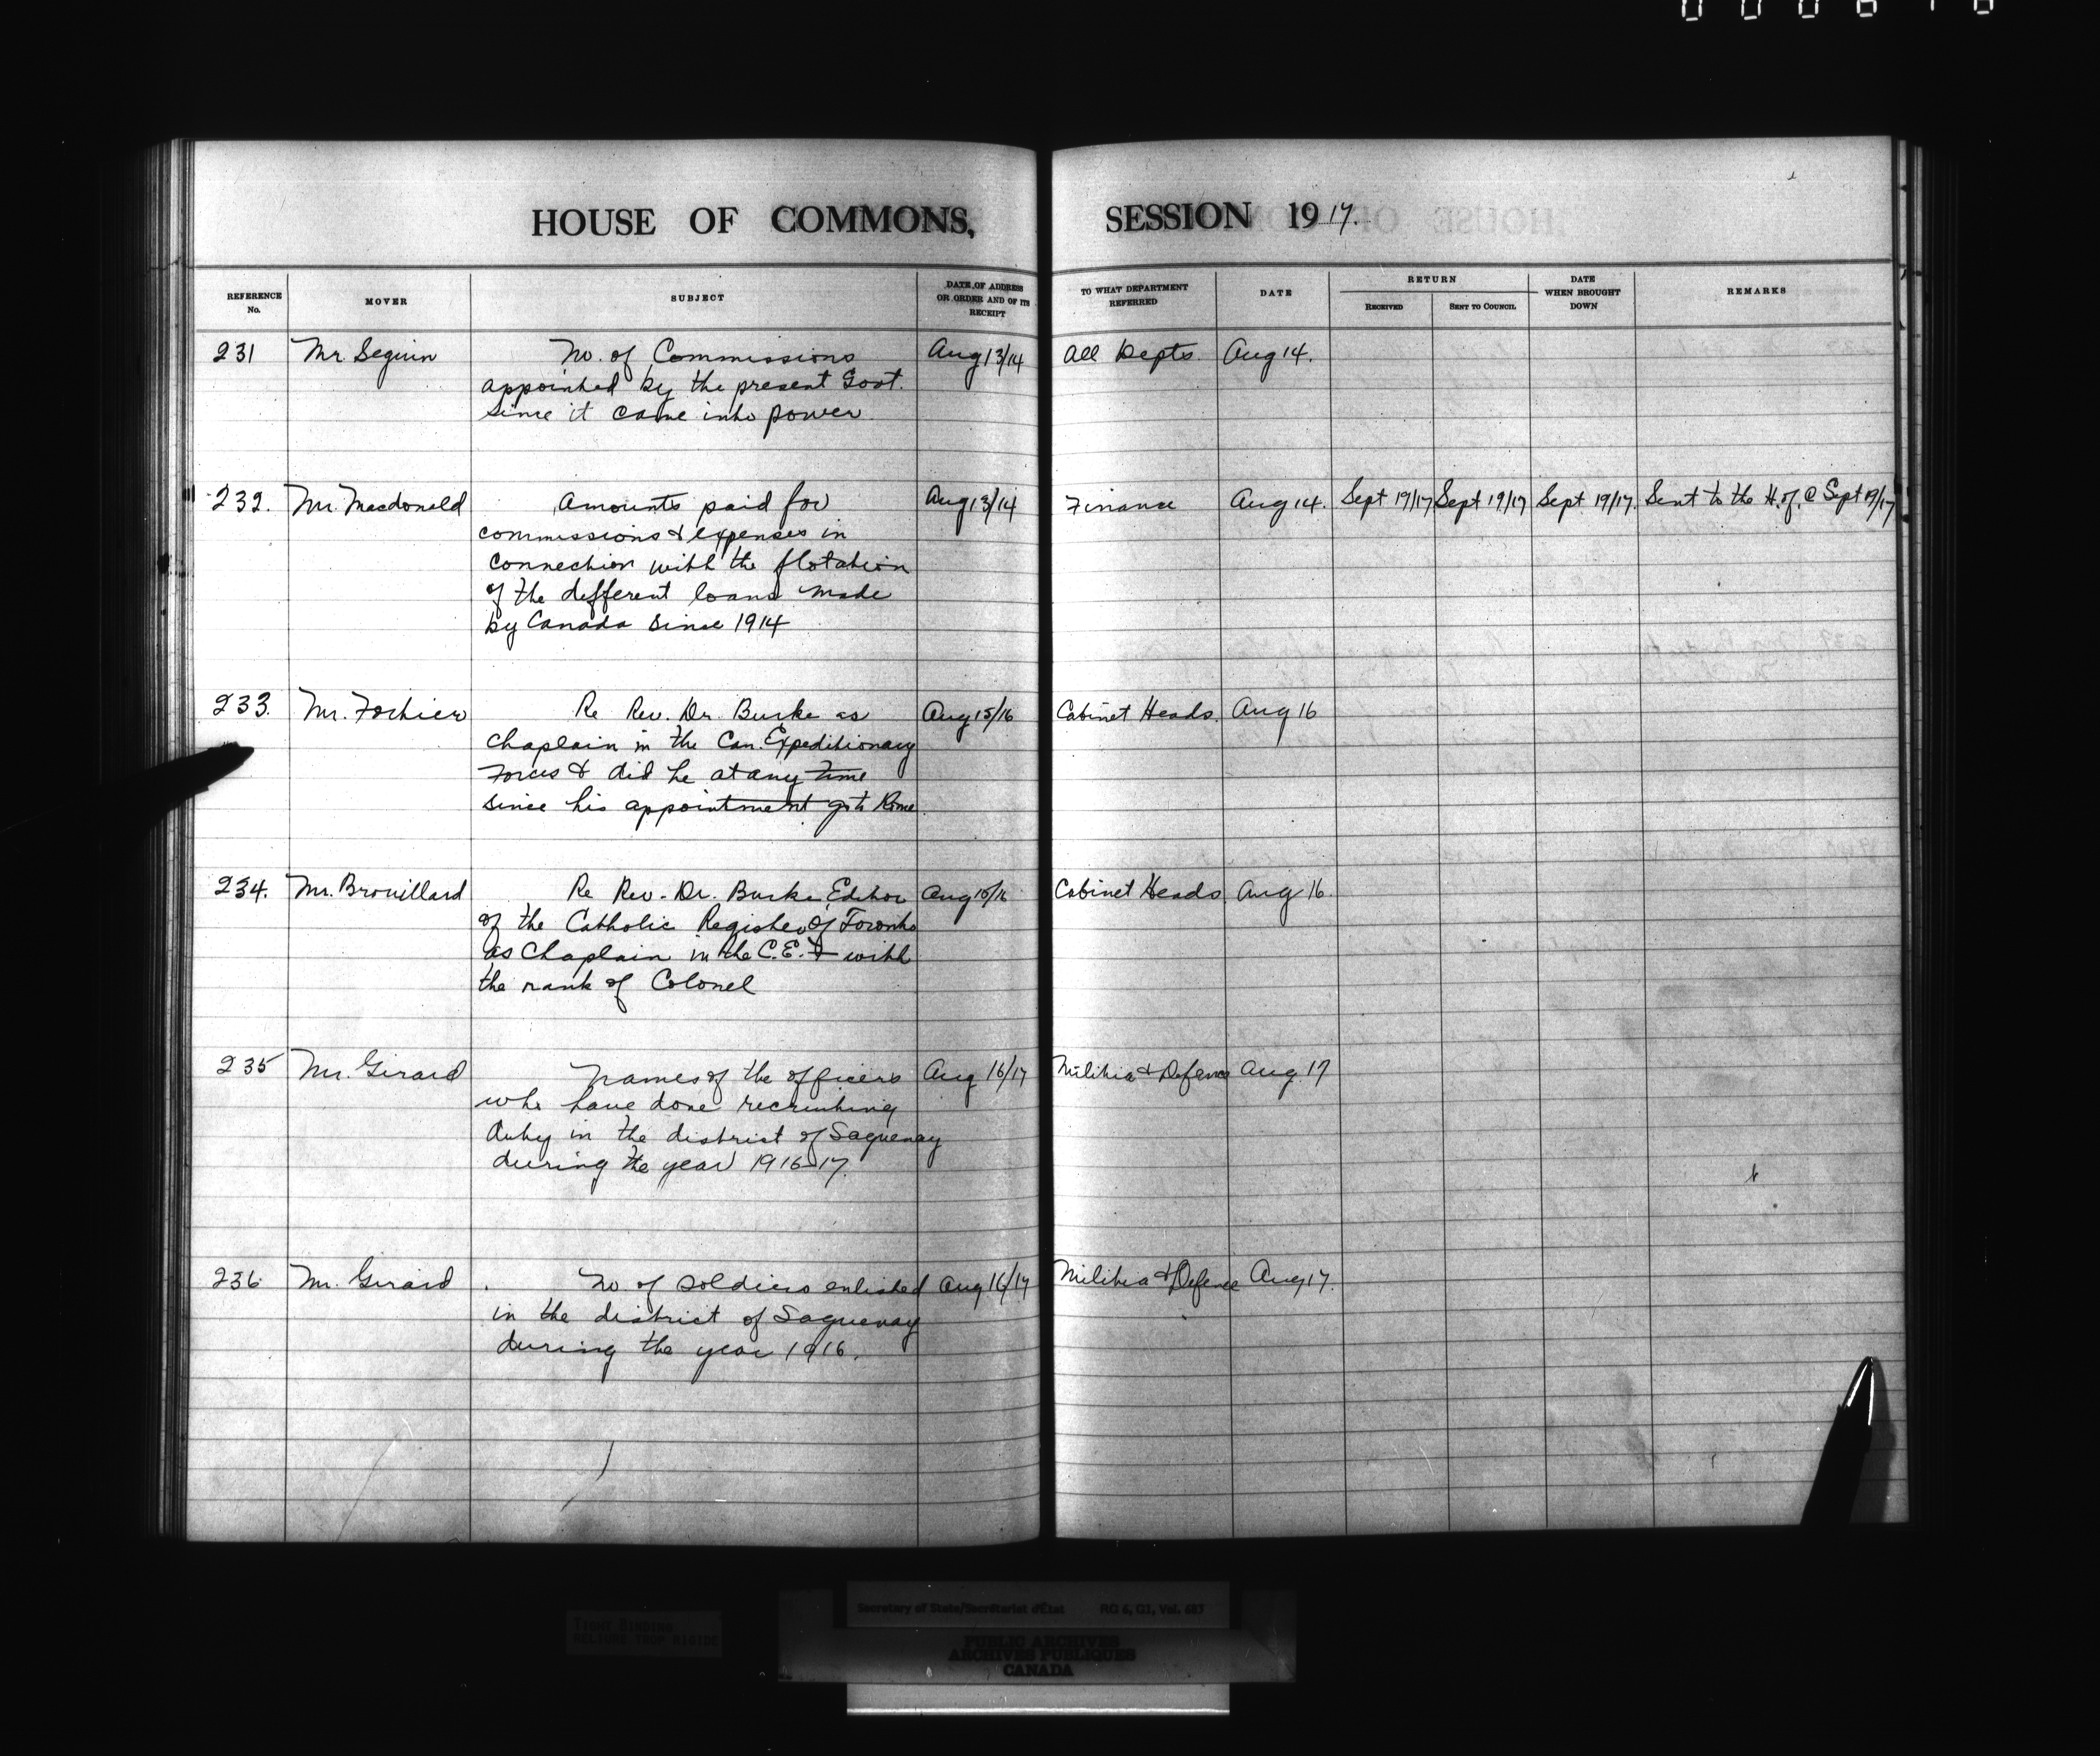 HOUSE OF COMMONS, SESSION 1917.
REFERENCE No. MOVER SUBJECT DATE OF ADDRESS OR ORDER AND OF ITS RECEIPT TO WHAT DEPARTMENT REFERRED DATE RETURN RECEIVED SENT TO COUNCIL DATE WHEN BROUGHT DOWN REMARKS
231 Mr Seguin No. of Commissions Aug 13/14 All Depts Aug 14.
appointed by the present Govt.
since it came into power
232. Mr. Macdonald Amounts paid for Aug 13/14 Finance Aug 14. Sept 19/17 Sept 19/17 Sept 19/17. Sent to the H. of. C Sept 19/17
commissions & expenses in
connection with the flotation
of the different loans made
by Canada since 1914
233. Mr. Fortier Re Rev. Dr. Burke as Aug 15/16 Cabinet Heads. Aug 16
Chaplain in the Can. Expeditionary
Forces & did he at any time
since his appointment go to Rome
234. Mr. Brouillard Re Rev. Dr. Burke Editor Aug 15/16 Cabinet Heads Aug 16.
of the Catholic Register of Toronto
as Chaplain in the C.E.F with
the rank of Colonel
235 Mr. Girard Names of the officers Aug 16/17 Militia & Defence Aug 17
who have done recruiting
duty in the district of Saguenay
during the year 1916-17.
236 Mr. Girard No. of soldiers enlisted Aug 16/17 Militia & Defence Aug 17.
in the district of Saguenay
during the year 1916.
Secretary of State/Secrétariat d'État RG 6, G1, Vol. 687
TIGHT BINDING
RELIURE TROP RIGIDE
PUBLIC ARCHIVES
ARCHIVES PUBLIQUES
CANADA